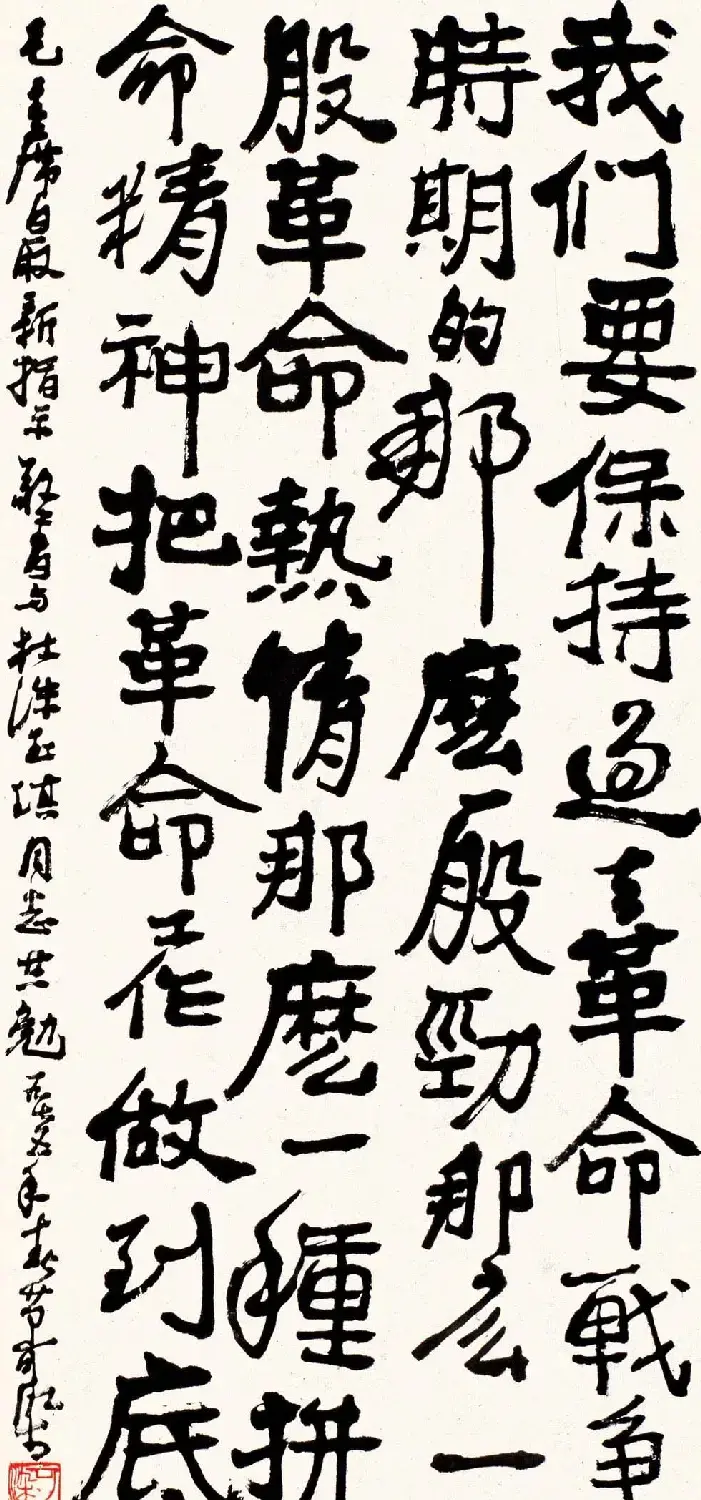 我们要保持過去革命戰争
時期的那麼一股勁那么一
股革命熱情那麼一種拼
命精神把革命工作做到底
毛主席最新指示 敬書与杜琪同志共勉 年春节可染書
可染